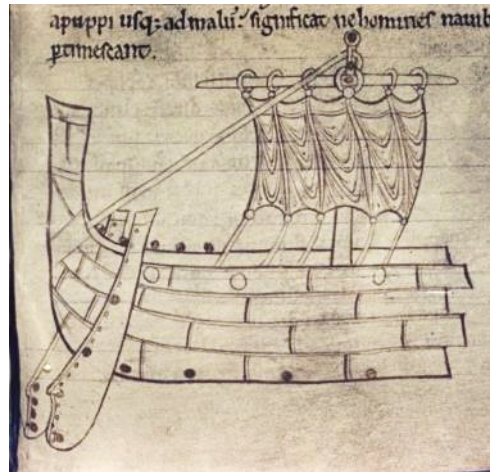 apuppi usq; ad malū. significat ne homines nauib
ꝑtimescant.